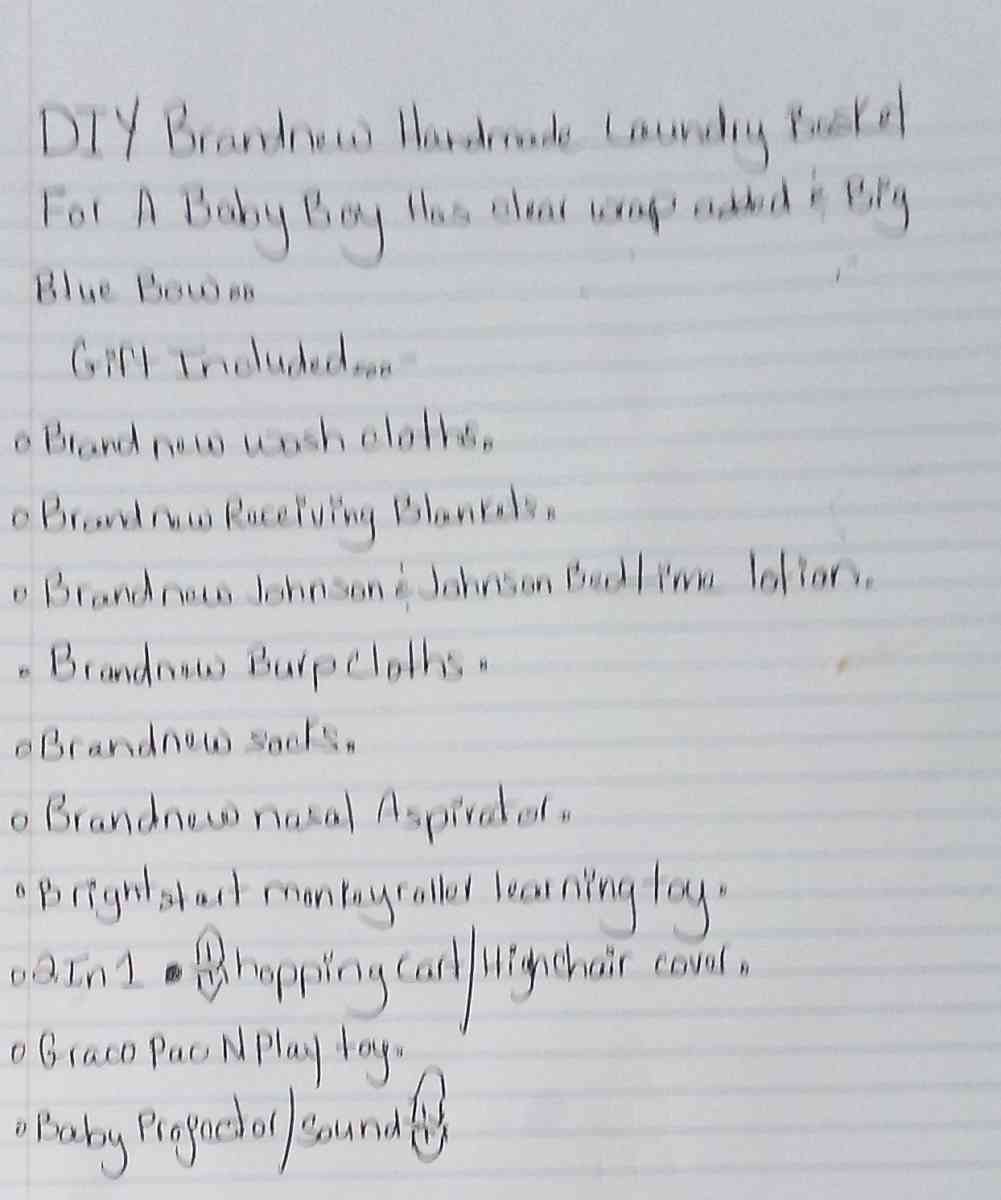 DIY Brandnew Handmade Laundry Basket
For A Baby Boy Has clear wrap added & Big
Blue Bow..
Gift Included....
° Brand new wash cloths.
° Brand new Receiving Blankets.
° Brand new Johnson & Johnson Bedtime lotion.
° Brandnew Burp Cloths.
° Brandnew socks.
° Brandnew nasal Aspirator.
° Bright start monkey roller learning toy.
° 2 In 1 Shopping Cart/Highchair cover.
° Graco Pac N Play toy.
° Baby Projector/Sound